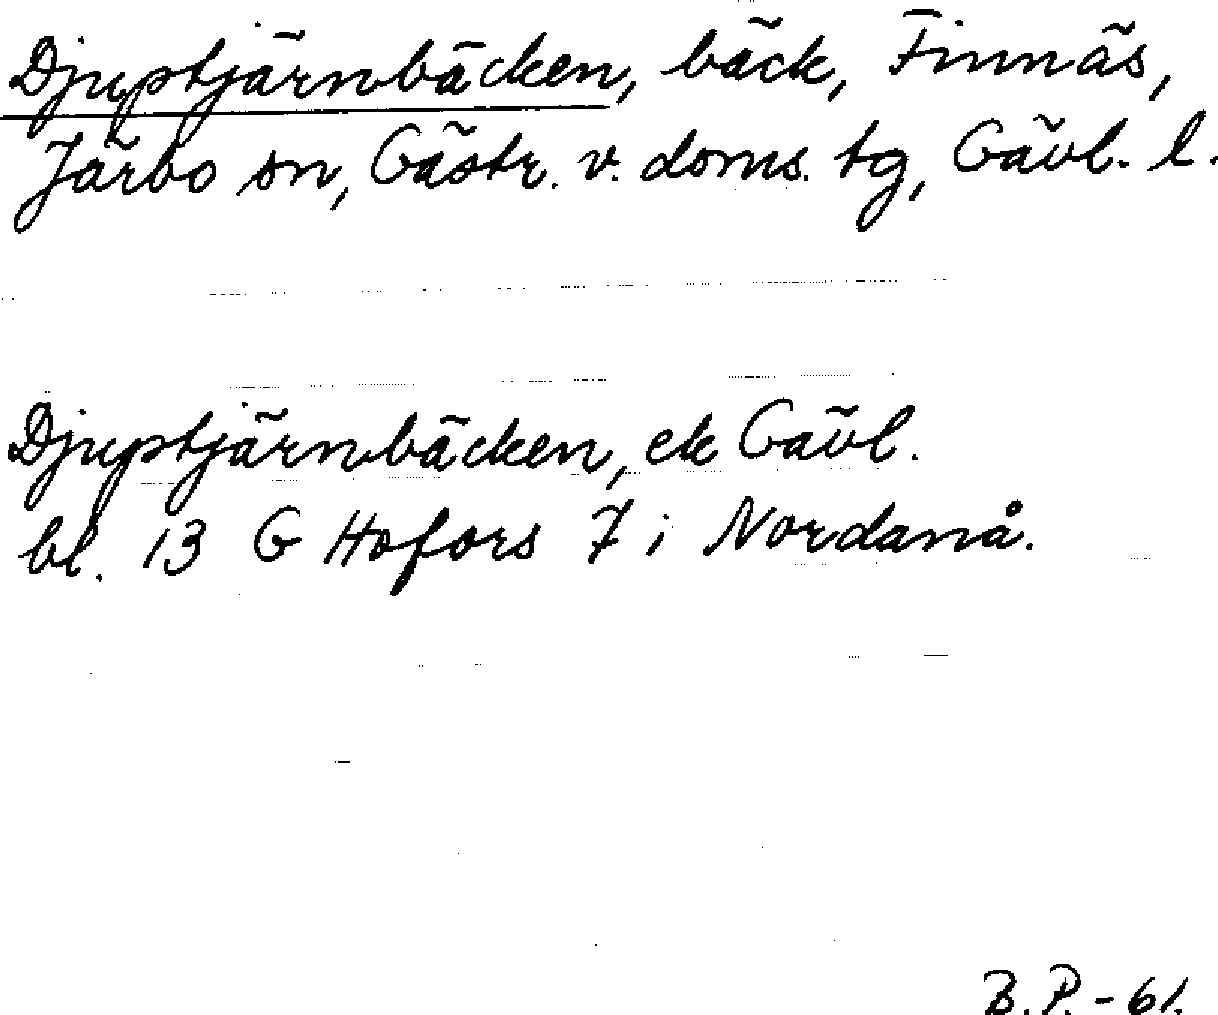 Djuptjärnbäcken, bäck, Finnäs,
Järbo sn, Gästr. v. doms. tg, Gävl. l.
Djuptjärnbäcken, ek Gävl.
bl. 13 G Hofors 7 i Nordanå.
B.P.-61.